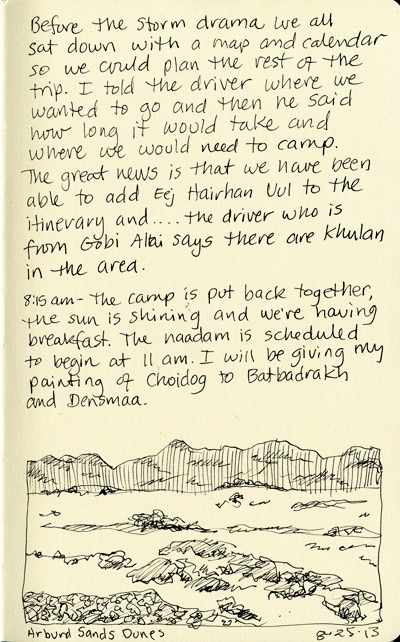 Before the storm drama we all
sat down with a map and calendar
so we could plan the rest of the
trip. I told the driver where we
wanted to go and then he said
how long it would take and
where we would need to camp.
The great news is that we have been
able to add Eej Hairhan Uul to the
itinerary and.... the driver who is
from Gobi Altai says there are Khulan
in the area.
8:15 am- The camp is put back together,
the sun is shining and we're having
breakfast. The naadam is scheduled
to begin at 11 am. I will be giving my
painting of Choidog to Batbadrakh
and Densmaa.
Arburd Sands Dunes
8-25-13